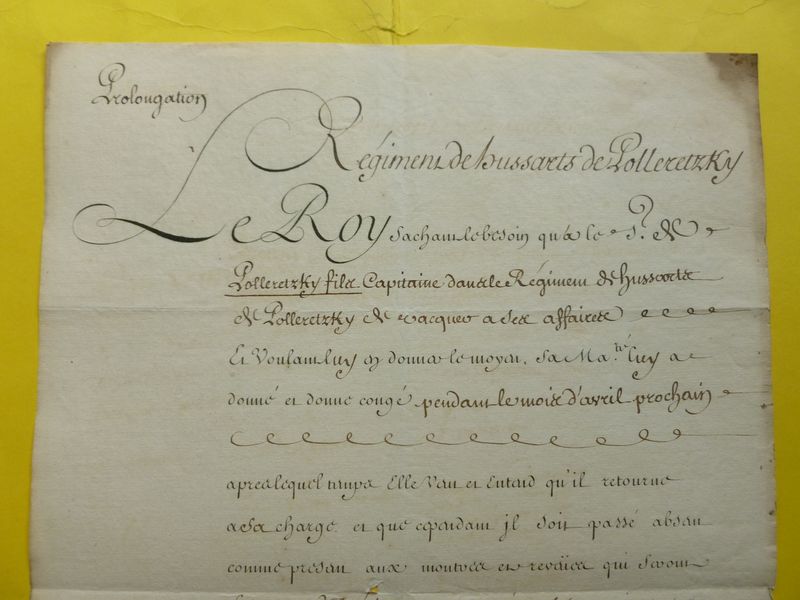 Prolongation
Régiment de hussarts de Polleretzky
Le Roy sachant le besoin qu'a le S.r de
Polleretzky fils Capitaine dans le Régiment de hussarts
de Polleretzky de vacquer a ses affaires
Et Voulant luy en donner le moyen, Sa Ma.té luy a
donné et donne congé pendant le mois d'avril prochain
apres lequel tamps Elle Veut et Entend qu'il retourne
a sa charge et que cepandant jl soit passé absan
comme presan aux montres et revües qui seront